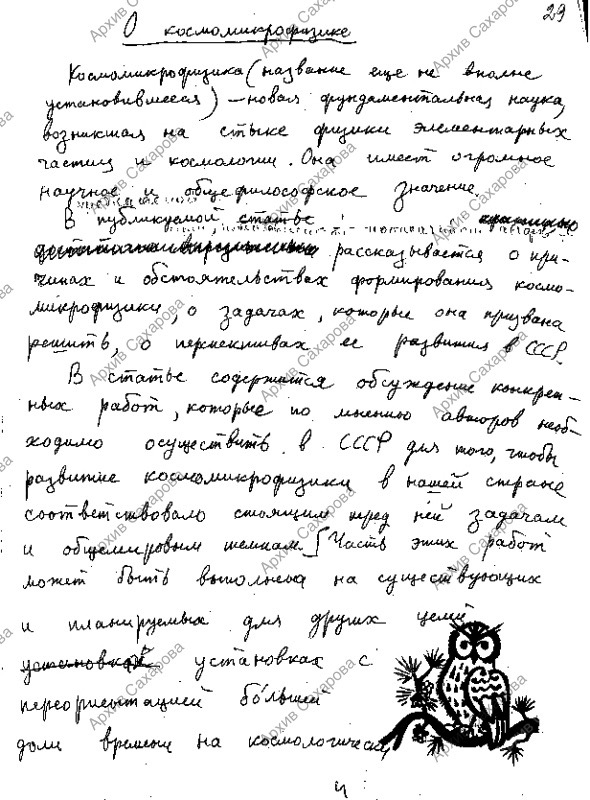 29
О космомикрофизике
Космомикрофизика (название еще не вполне
установившееся) — новая фундаментальная наука,
возникшая на стыке физики элементарных
частиц и космологии. Она имеет огромное
научное и общефилософское значение.
В публикуемой статье
рассказывается о при-
чинах и обстоятельствах формирования космо-
микрофизики, о задачах, которые она призвана
решить, о перспективах ее развития в СССР.
В статье содержится обсуждение конкрет-
ных работ, которые по мнению авторов необ-
ходимо осуществить в СССР для того, чтобы
развитие космомикрофизики в нашей стране
соответствовало стоящим перед ней задачам
и общемировым темпам. Часть этих работ
может быть выполнена на существующих
и планируемых для других целей
установках с
переориентацией бо́льшей
доли времени на космологическ
и
Архив Сахарова